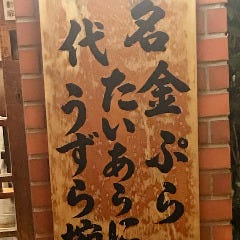 名金ぷら
たいあらに
代うずら